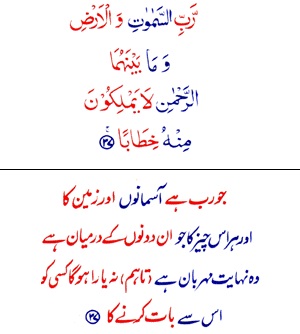 رَّبِّ السَّمٰوٰتِ وَ الْاَرْضِ
وَ مَا بَيْنَهُمَا
الرَّحْمٰنِ لَا يَمْلِكُوْنَ
مِنْهُ خِطَابًا ﴿۳۷﴾
جو رب ہے آسمانوں اور زمین کا
اور ہر اس چیز کا جو ان دونوں کے درمیان ہے
وہ نہایت مہربان ہے (تاہم) نہ یارا ہو گا کسی کو
اس سے بات کرنے کا ﴿۳۷﴾